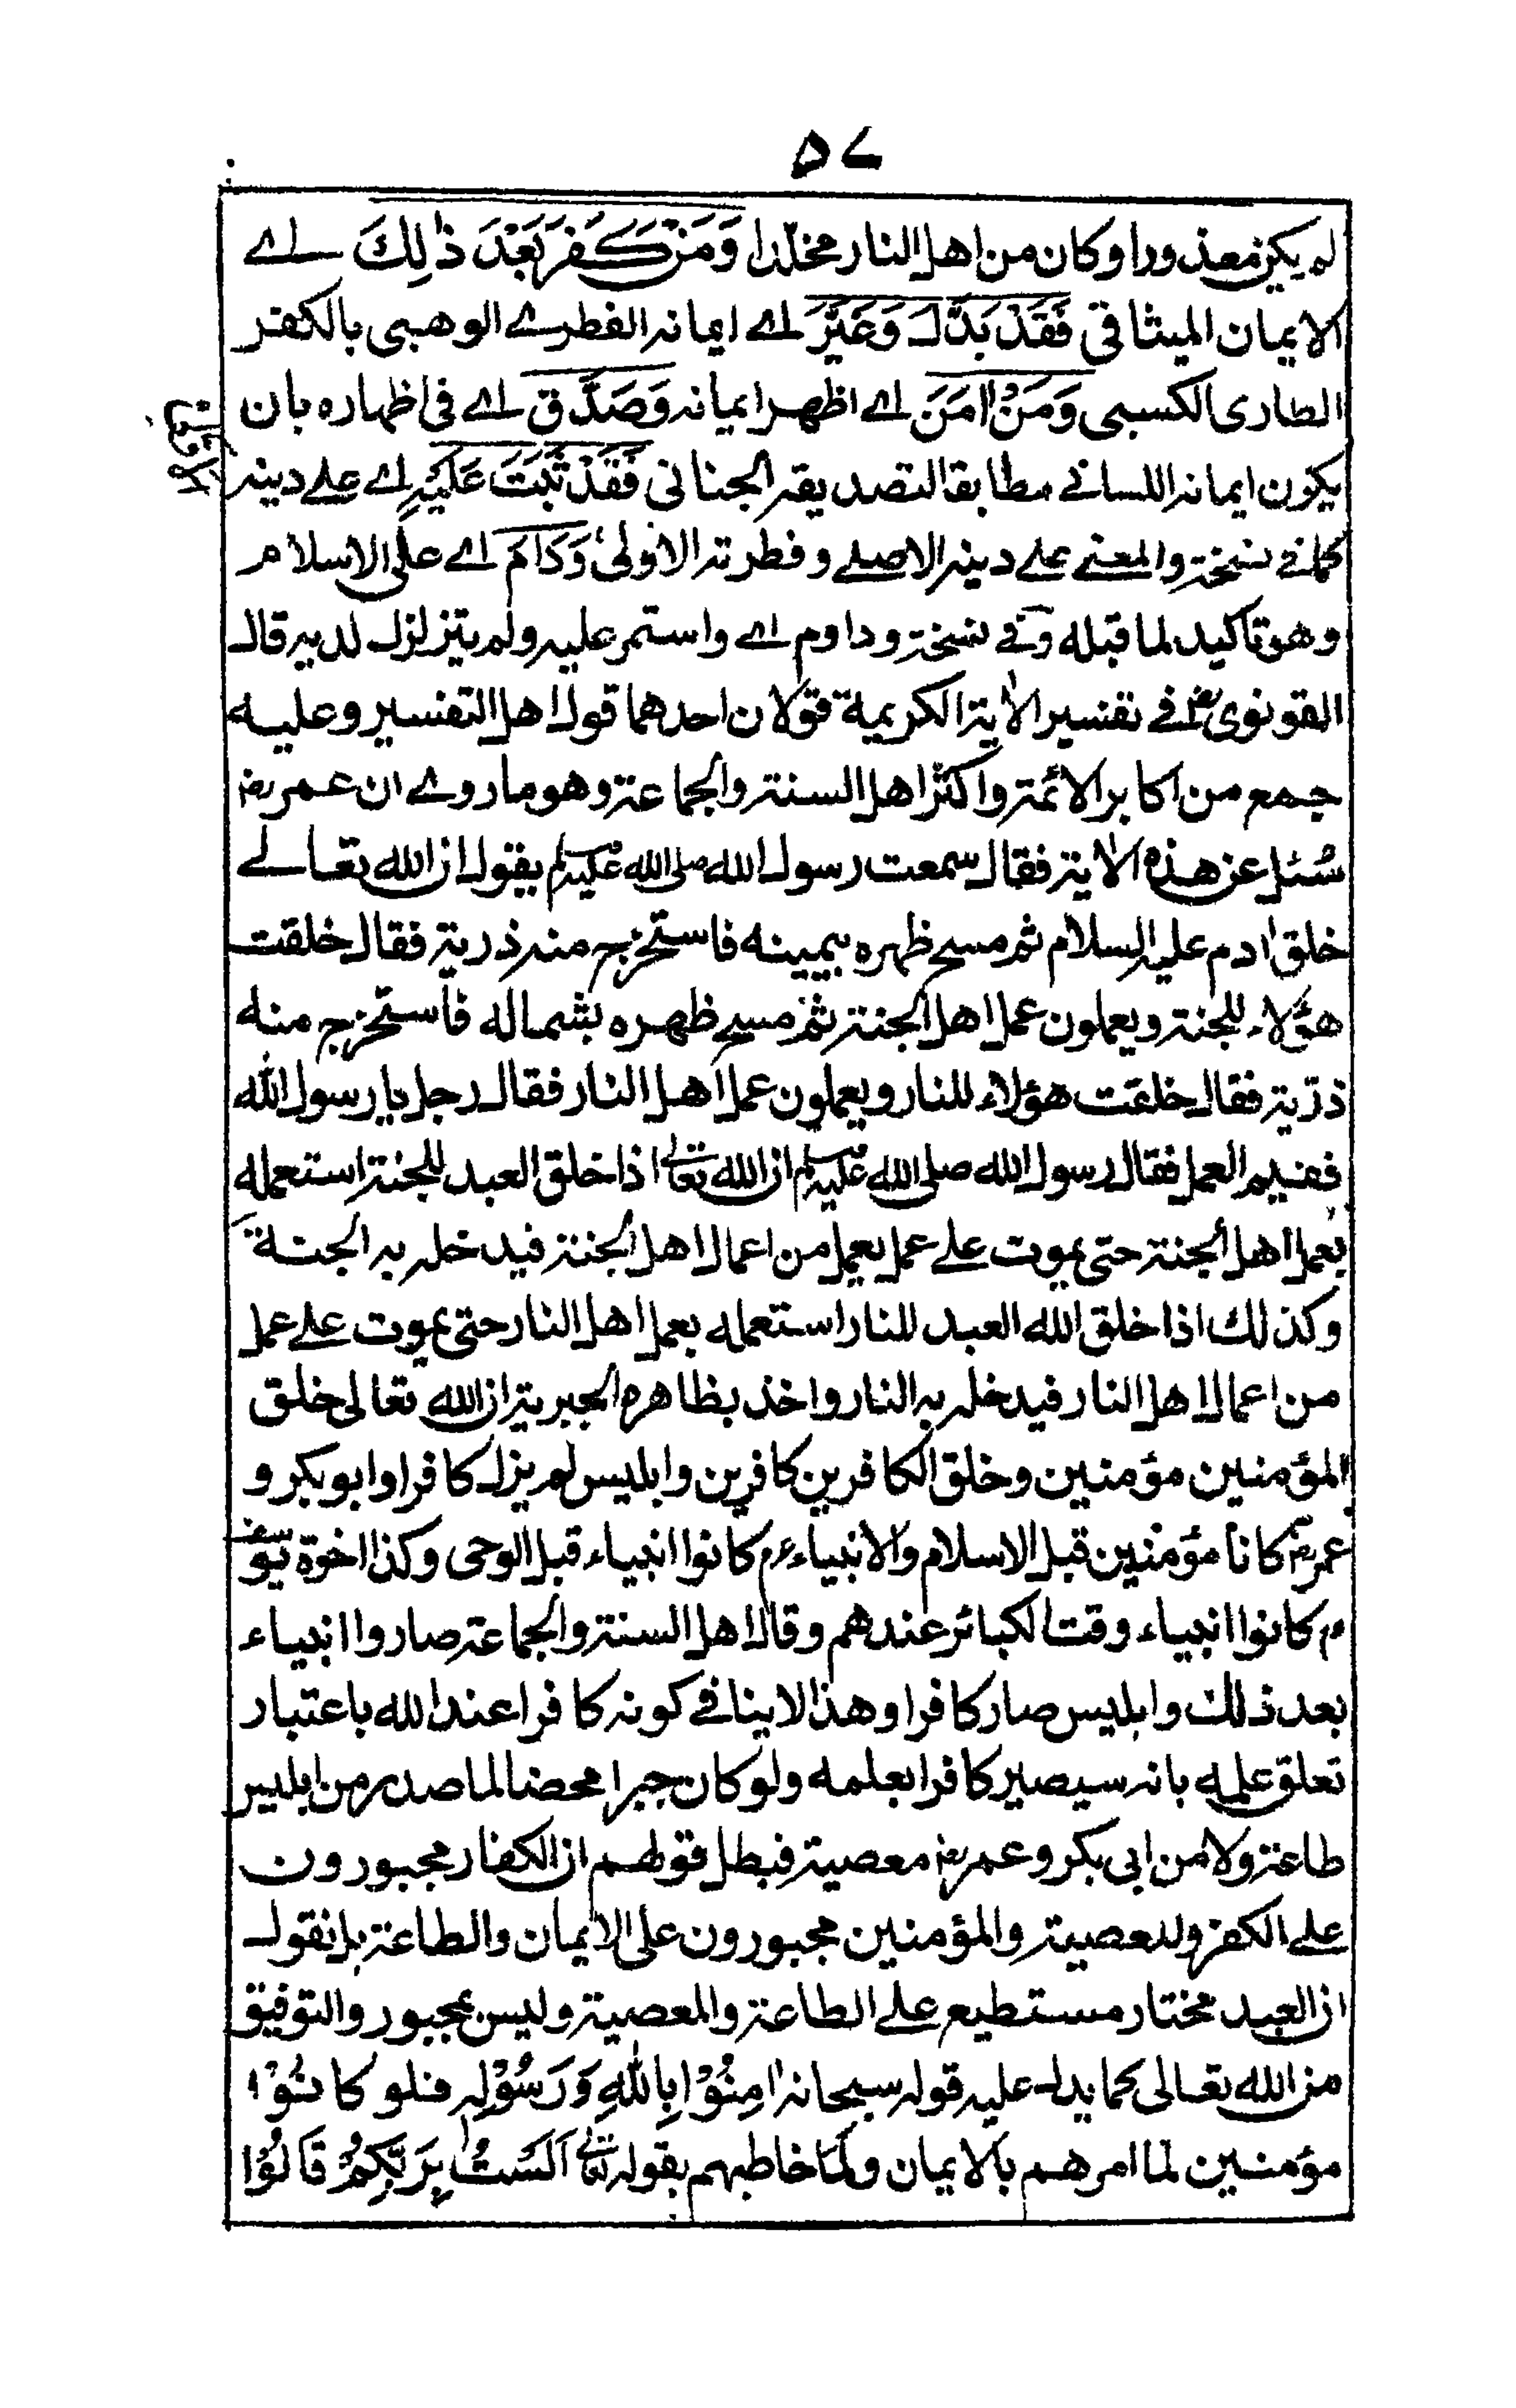 ۵۷
لم يكن معذورا وكان من اهل النار مخلدا وَمَنْ كَفَرَ بَعْدَ ذٰلِكَ اے
الايمان الميثاقي فَقَدْ بَدَّلَ وَغَيَّرَ اے ايمانه الفطرے الوهبى بالكفر
الطارى الكسبى وَمَنْ اٰمَنَ اے اظهر ايمانه وَصَدَّقَ اے فى اظهاره بان
يكون ايمانه اللسانے مطابقا لتصديقه الجنانى فَقَدْ ثَبَتَ عَلَيْهِ اے علے دينه
كما فے نسخة والمعنے علے دينه الاصلے وفطرته الاولىٰ وَدَامَ اے على الاسلام
وهو تاكيد لما قبله وفے نسخة وداوم اے واستمر عليه ولم يتزلزل لديه قال
القونوى رح فے تفسير الاٰية الكريمة قولان احدهما قول اهل التفسير وعليه
جمع من اكابر الائمة واكثر اهل السنة والجماعة وهو ما روے ان عمر رض
سُئل عن هذه الاٰية فقال سمعت رسول الله صلى الله عليه وسلم يقول ان الله تعالے
خلق اٰدم عليه السلام ثم مسح ظهره بيمينه فاستخرج منه ذرية فقال خلقت
هؤلاء للجنة ويعملون عمل اهل الجنة ثم مسح ظهره بشماله فاستخرج منه
ذرّية فقال خلقت هؤلاء للنار ويعملون عمل اهل النار فقال رجل يا رسول الله
ففيم العمل فقال رسول الله صلى الله عليه وسلم ان الله تعالى اذا خلق العبد للجنة استعمله
بعمل اهل الجنة حتى يموت علے عمل يعمل من اعمال اهل الجنة فيدخله به الجنة
وكذلك اذا خلق الله العبد للنار استعمله بعمل اهل النار حتى يموت علے عمل
من اعمال اهل النار فيدخله به النار واخذ بظاهره الجبرية ان الله تعالى خلق
المؤمنين مؤمنين وخلق الكافرين كافرين وابليس لم يزل كافرا وابو بكر و
عمر رض كانا مؤمنين قبل الاسلام والانبياء عم كانوا انبياء قبل الوحى وكذا اخوة يوسف
م كانوا انبياء وقت الكبائر عندهم وقال اهل السنة والجماعة صاروا انبياء
بعد ذلك وابليس صار كافرا وهذا لا ينافے كونه كافرا عند الله باعتبار
تعلق علمه بانه سيصير كافرا بعلمه ولو كان جبرا محضا لما صدر من ابليس
طاعة ولا من ابى بكر وعمر رض معصية فبطل قولهم ان الكفار مجبورون
علے الكفر والمعصية والمؤمنين مجبورون على الايمان والطاعة بل نقول
ان العبد مختار مستطيع علے الطاعة والمعصية وليس بمجبور والتوفيق
من الله تعالى كما يدل عليه قوله سبحانه اٰمِنُوْا بِاللهِ وَرَسُوْلِهٖ فلو كانُوْا
مؤمنين لما امرهم بالايمان ولما خاطبهم بقوله تعالى اَلَسْتُ بِرَبِّكُمْ قَالُوْا